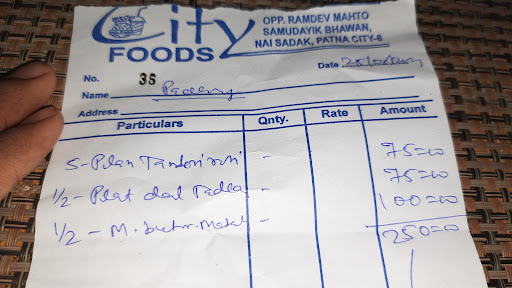 City
FOODS
OPP. RAMDEV MAHTO
SAMUDAYIK BHAWAN,
NAI SADAK, PATNA CITY-8
No. 38
Date
Name
Address
Particulars Qnty. Rate Amount
5- Plan Tandori roti - 75=00
1/2- Plat dal Tadka - 75=00
1/2 - M. butr. Masal - 100=00
250=00